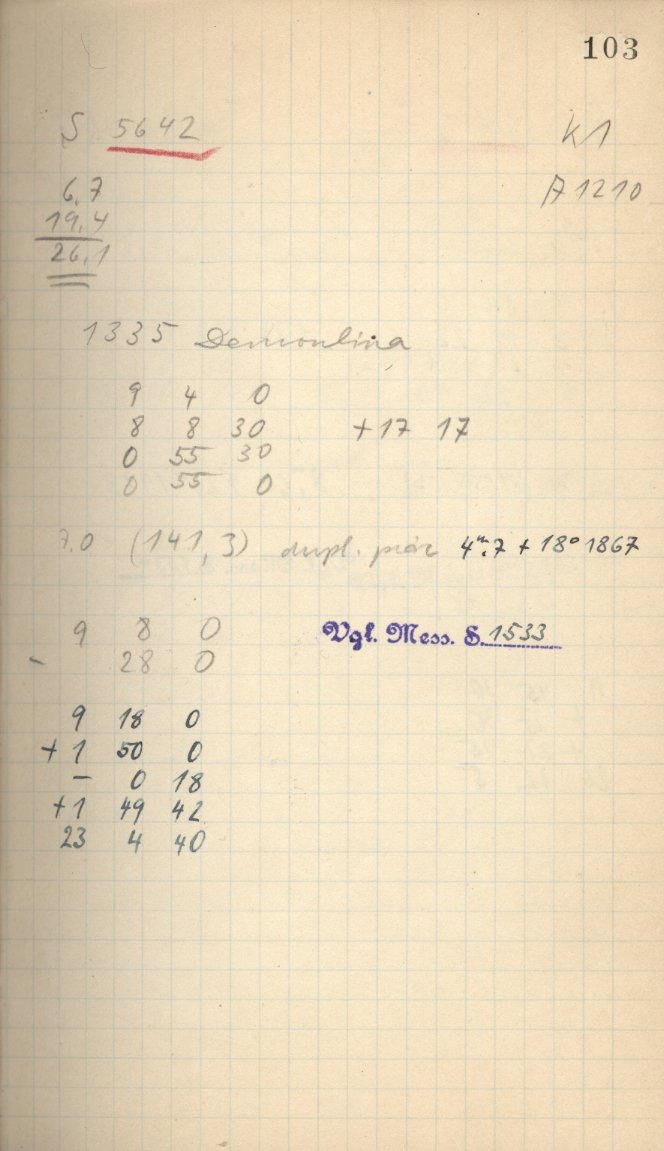 103
S 5642 K1
6,7 A 1210
19,4
26,1
1335 Demoulina
9 4 0
8 8 30 +17 17
0 55 30
0 55 0
7.0 (141,3) dupl. präc 4m.7 + 18° 1867
9 8 0 Vgl. Mess. S. 1533
- 28 0
9 18 0
+1 50 0
- 0 18
+1 49 42
23 4 40